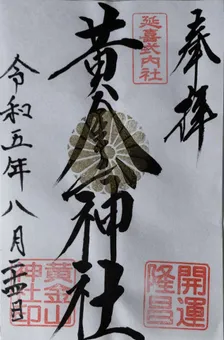 奉拝
延喜式内社
黄金神社
開運
隆昌
黄金山
神社印
令和五年八月二十四日